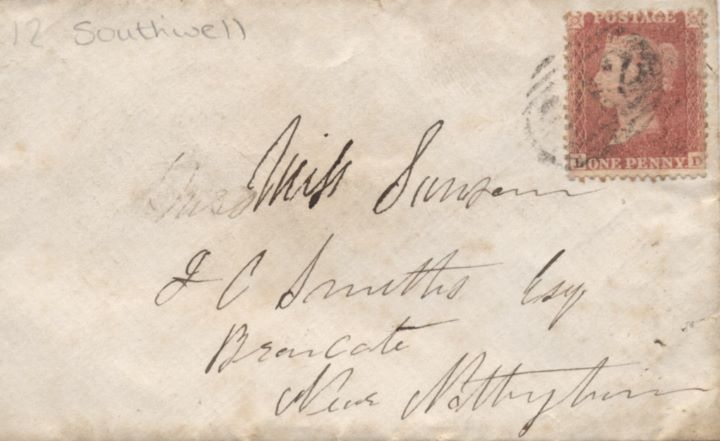 12 Southwell
POSTAGE
L ONE PENNY D
Miss
J C Smiths Esq
Near Nottingham